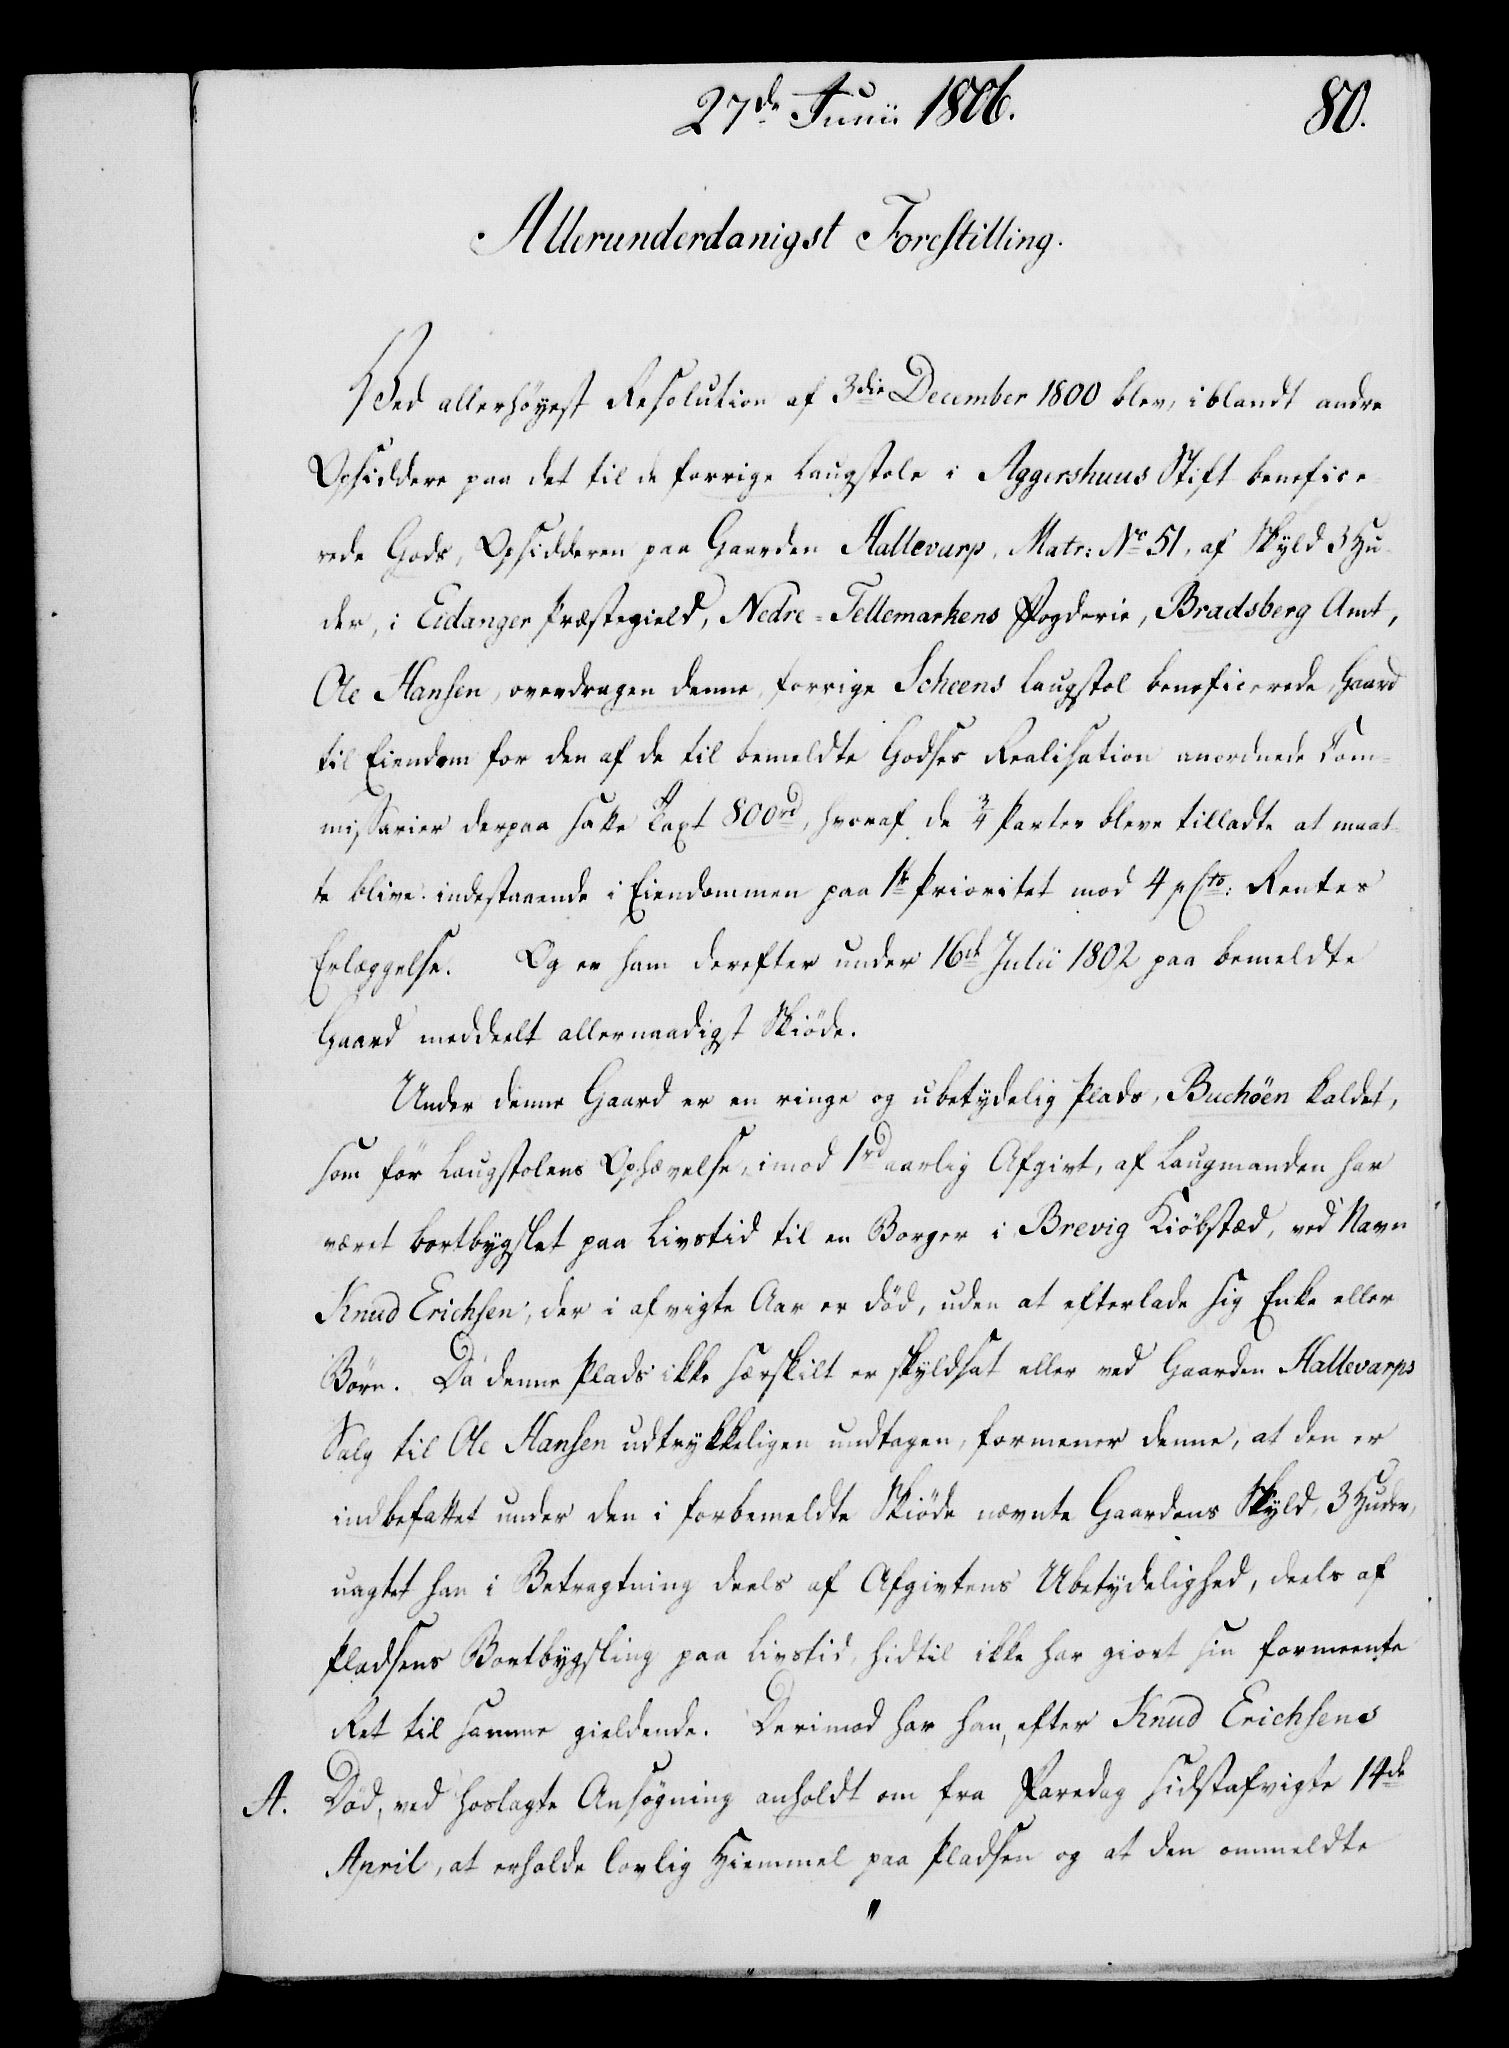 27de Junii 1806.
80.
Allerunderdanigst Forestilling.
Ved allerhöyest Resolution af 3die December 1800 blev, iblandt andre
Opsiddere paa det til de forrige Laugstole i Aggershuus Stift benefice-
rede Gods, Opsidderen paa Gaarden Hallevarp, Matr: No 51, af Skyld 3 Hu-
der, i Eidanger Præstegield, Nedre-Tellemarkens Fogderie, Bradsberg Amt,
Ole Hansen, overdragen denne, forrige Scheens Laugstol beneficerede, Gaard
til Eiendom for den af de til bemeldte Godses Realisation anordnede Com-
missarier derpaa satte Taxt 800 rd, hvoraf de 3/4 Parter bleve tilladte at maat-
te blive indestaaende i Eiendommen paa 1te Prioritet mod 4 pCto: Rentes
Erlæggelse. Og er ham derefter under 16de Julii 1802 paa bemeldte
Gaard meddeelt allernaadigst Skiöde.
Under denne Gaard er en ringe og ubetydelig Plads, Buchöen kaldet,
som för Laugstolens Ophævelse, imod 1 rd aarlig Afgivt, af Laugmanden har
været bortbygslet paa Livstid til en Borger i Brevig Kiöbstæd, ved Navn
Knud Erichsen, der i afvigte Aar er död, uden at efterlade sig Enke eller
Börn. Da denne Plads ikke særskilt er skyldsat eller ved Gaarden Hallevarps
Salg til Ole Hansen udtrykkeligen undtagen, formener denne, at den er
indbefattet under den i forbemeldte Skiöde nævnte Gaardens Skyld, 3 Huder,
uagtet han i Betragtning deels af Afgivtens Ubetydelighed, deels af
Pladsens Bortbygsling paa Livstid, hidtil ikke har giort sin formeente
Ret til samme gieldende. Derimod har han, efter Knud Erichsens
A. Död, ved hoslagte Ansögning anholdt om fra Faredag sidstafvigte 14de
April, at erholde lovlig Hiemmel paa Pladsen og at den ommeldte
"